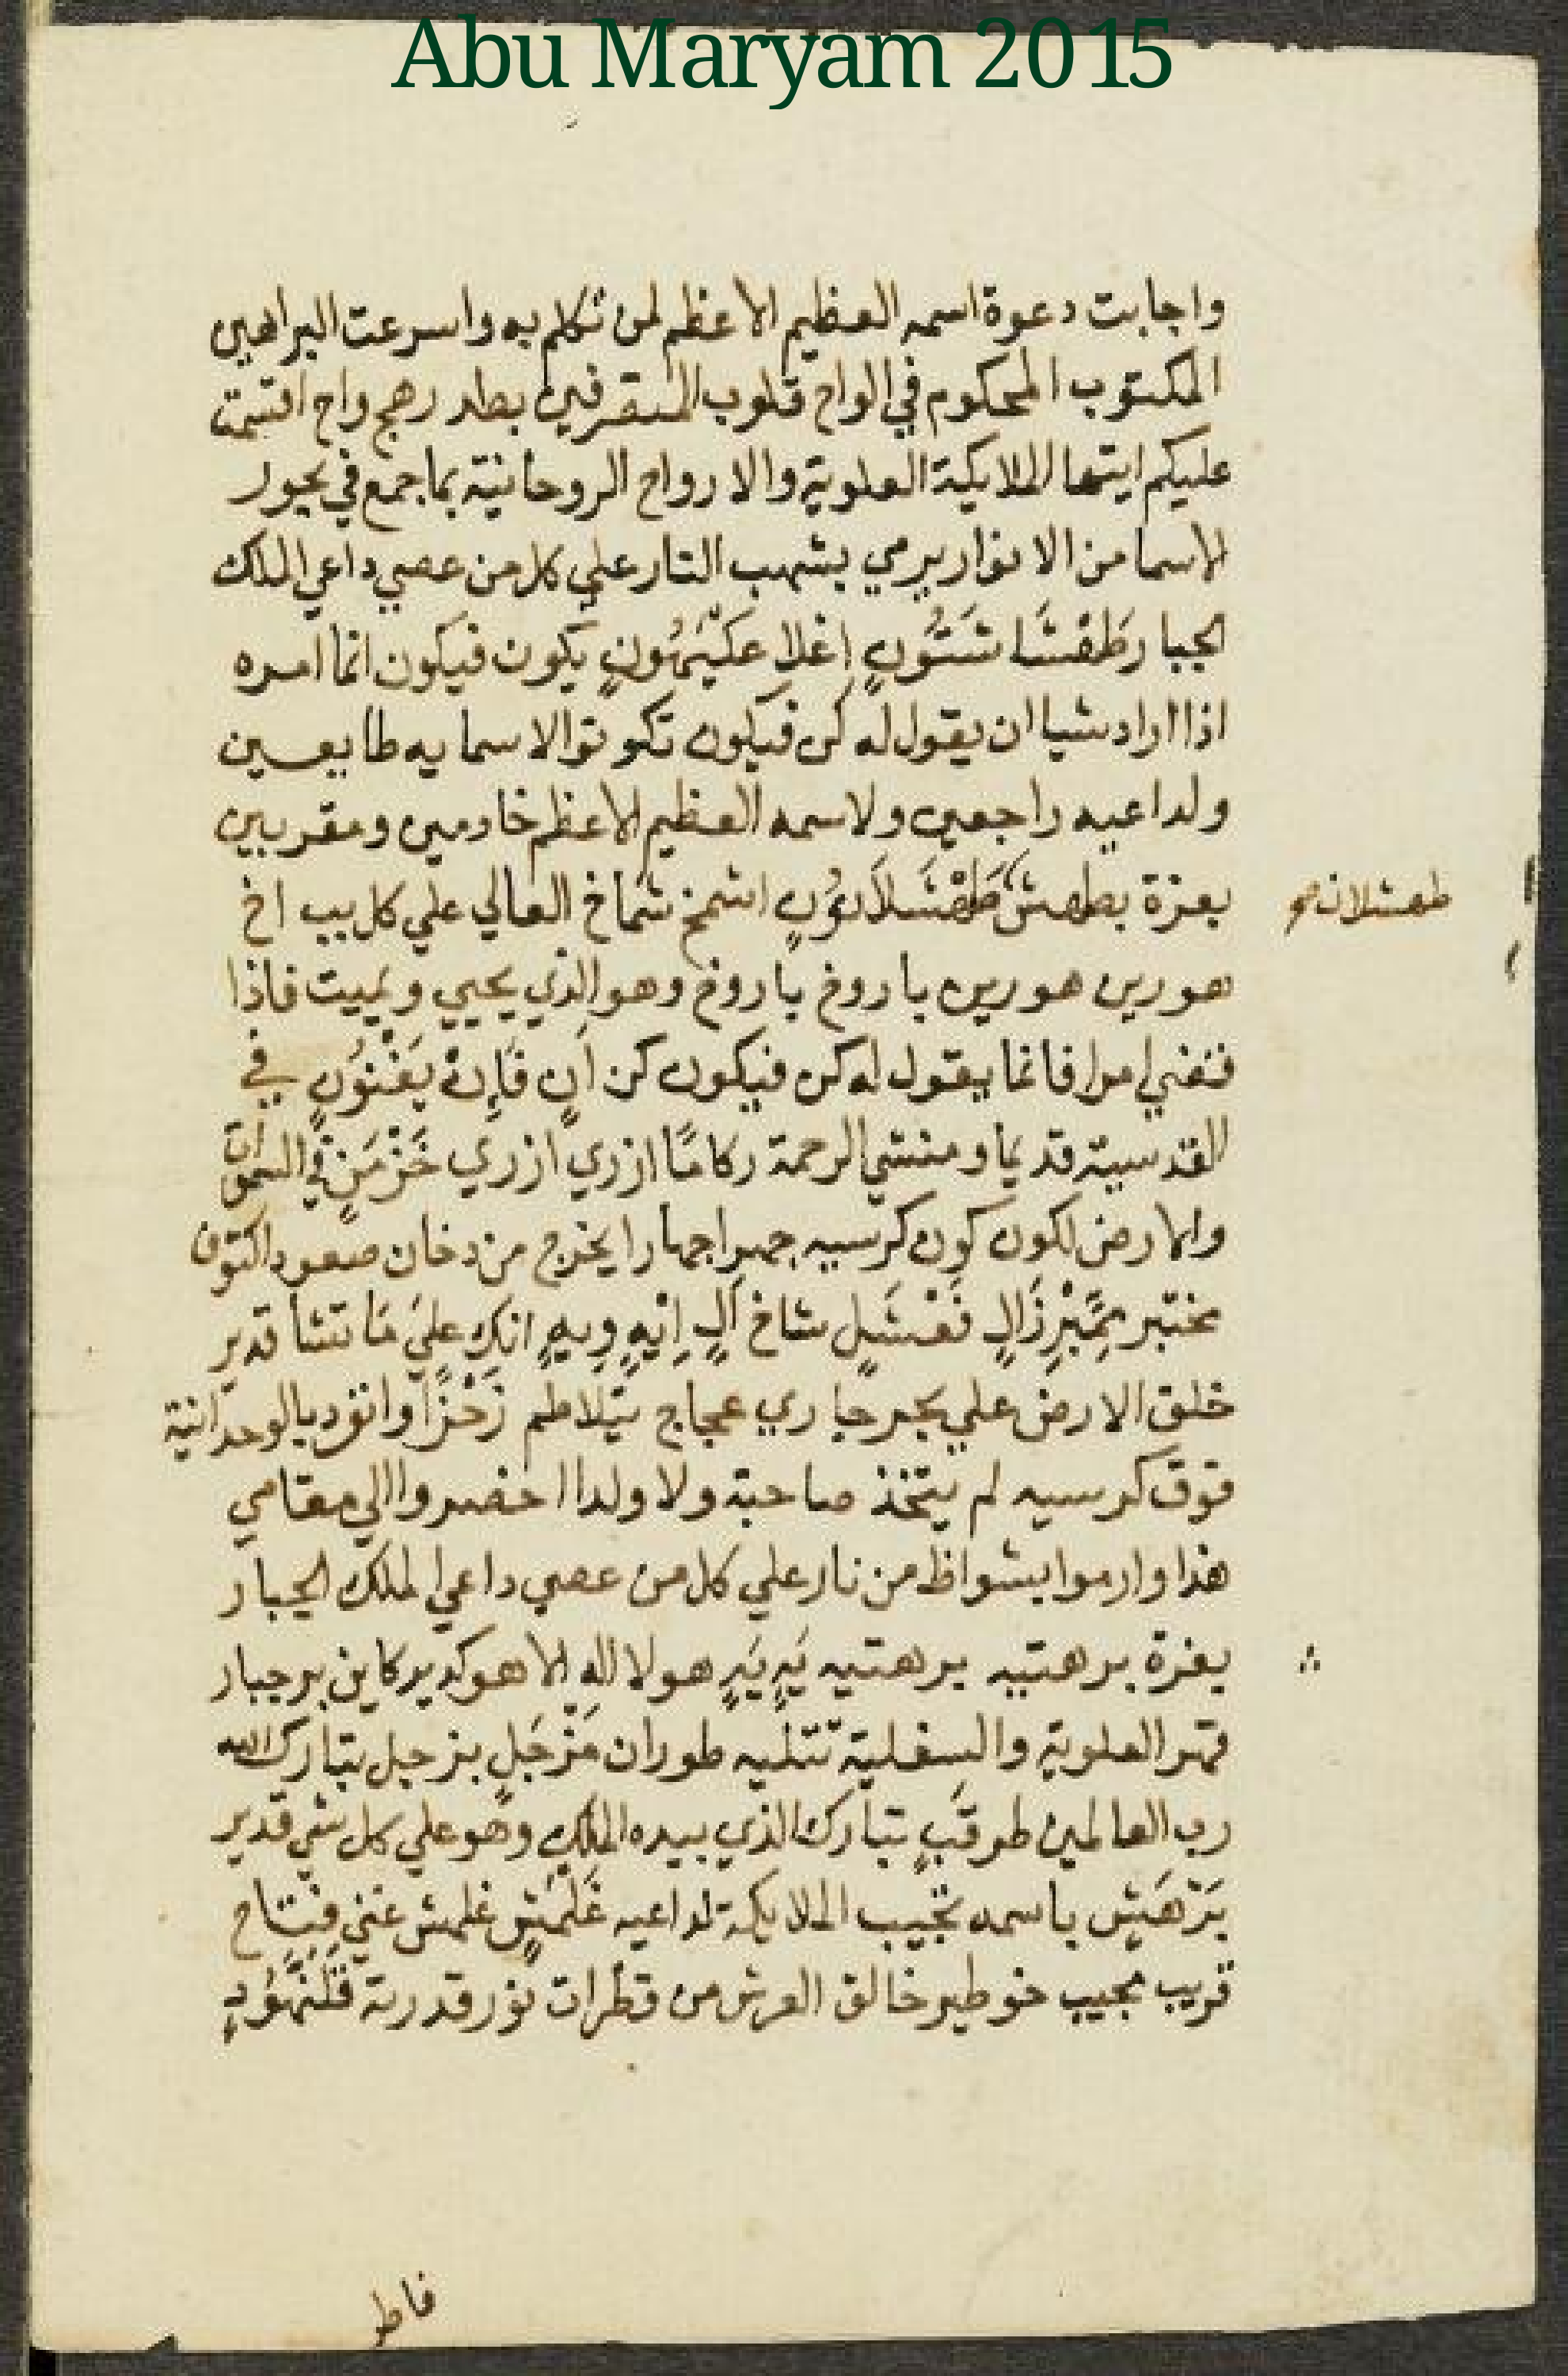 Abu Maryam 2015
واجابت دعوة اسمه العظيم الاعظم لمن تكلم به واسرعت البراهين
المكتوب المحكوم في الواح قلوب المتقرفين بطد رهج واح اقسمت
عليكم ايتها الملايكة العلوية والارواح الروحانية بما جمع في بحور
الاسما من الانوار يرمي بشهب النار علي كل من عصي داعي الملك
الجبار طهشا شتون اغلا عكيمهون يكون فيكون انما امره
اذا اراد شيا ان يقول له كن فيكون تكونوا لاسمايه طايعين
ولداعيه راجعين ولاسمه العظيم الاعظم خادمين ومقربين
بعزة بطهش طَهْشَلاَنُونٍ اشمخ شماخ العالي علي كل يبب اخ
طهشلان صح
هورين هورين باروخ باروخ وهو الذي يحيي ويميت فاذا
قضي امرا فانما يقول له كن فيكون كن ان فانه يَفْنُونٍ في
القدسية قديما ومنشي الرحمة ركاما ازري ازري خَزْمَنٍ في السموات
والارض لكون كون كرسيه جهرا جهارا يخرج من دخان صعود
قدير انك علي ما تشا
خلق الارض علي بحر جاري عجاج يتلاطم زَخْزًا وانفرد بالوحدانية
فوق كرسيه لم يتخذ صاحبة ولا ولدا احضروا الي مقامي
هذا وارموا بشواظ من نار علي كل من عصي داعي الملك الجبار
بعزة برهتيه برهتيه يَهٍ يَهٍ هو لا اله الا هو كرير كاين بر جبار
قهر العلوية والسفلية تتليه طوران مَزْجَلٍ بزجل تبارك الله
رب العالمين طرقبٍ تبارك الذي بيده الملك وهو علي كل شي قدير
بَرْهَشٍ باسمه تجيب الملايكة لداعيه غَلْمَشٍ غلمش غني فتاح
قريب مجيب خوطير خالق العرش من قطرات نور قدرته قَلَنْهُودٍ
فاطر